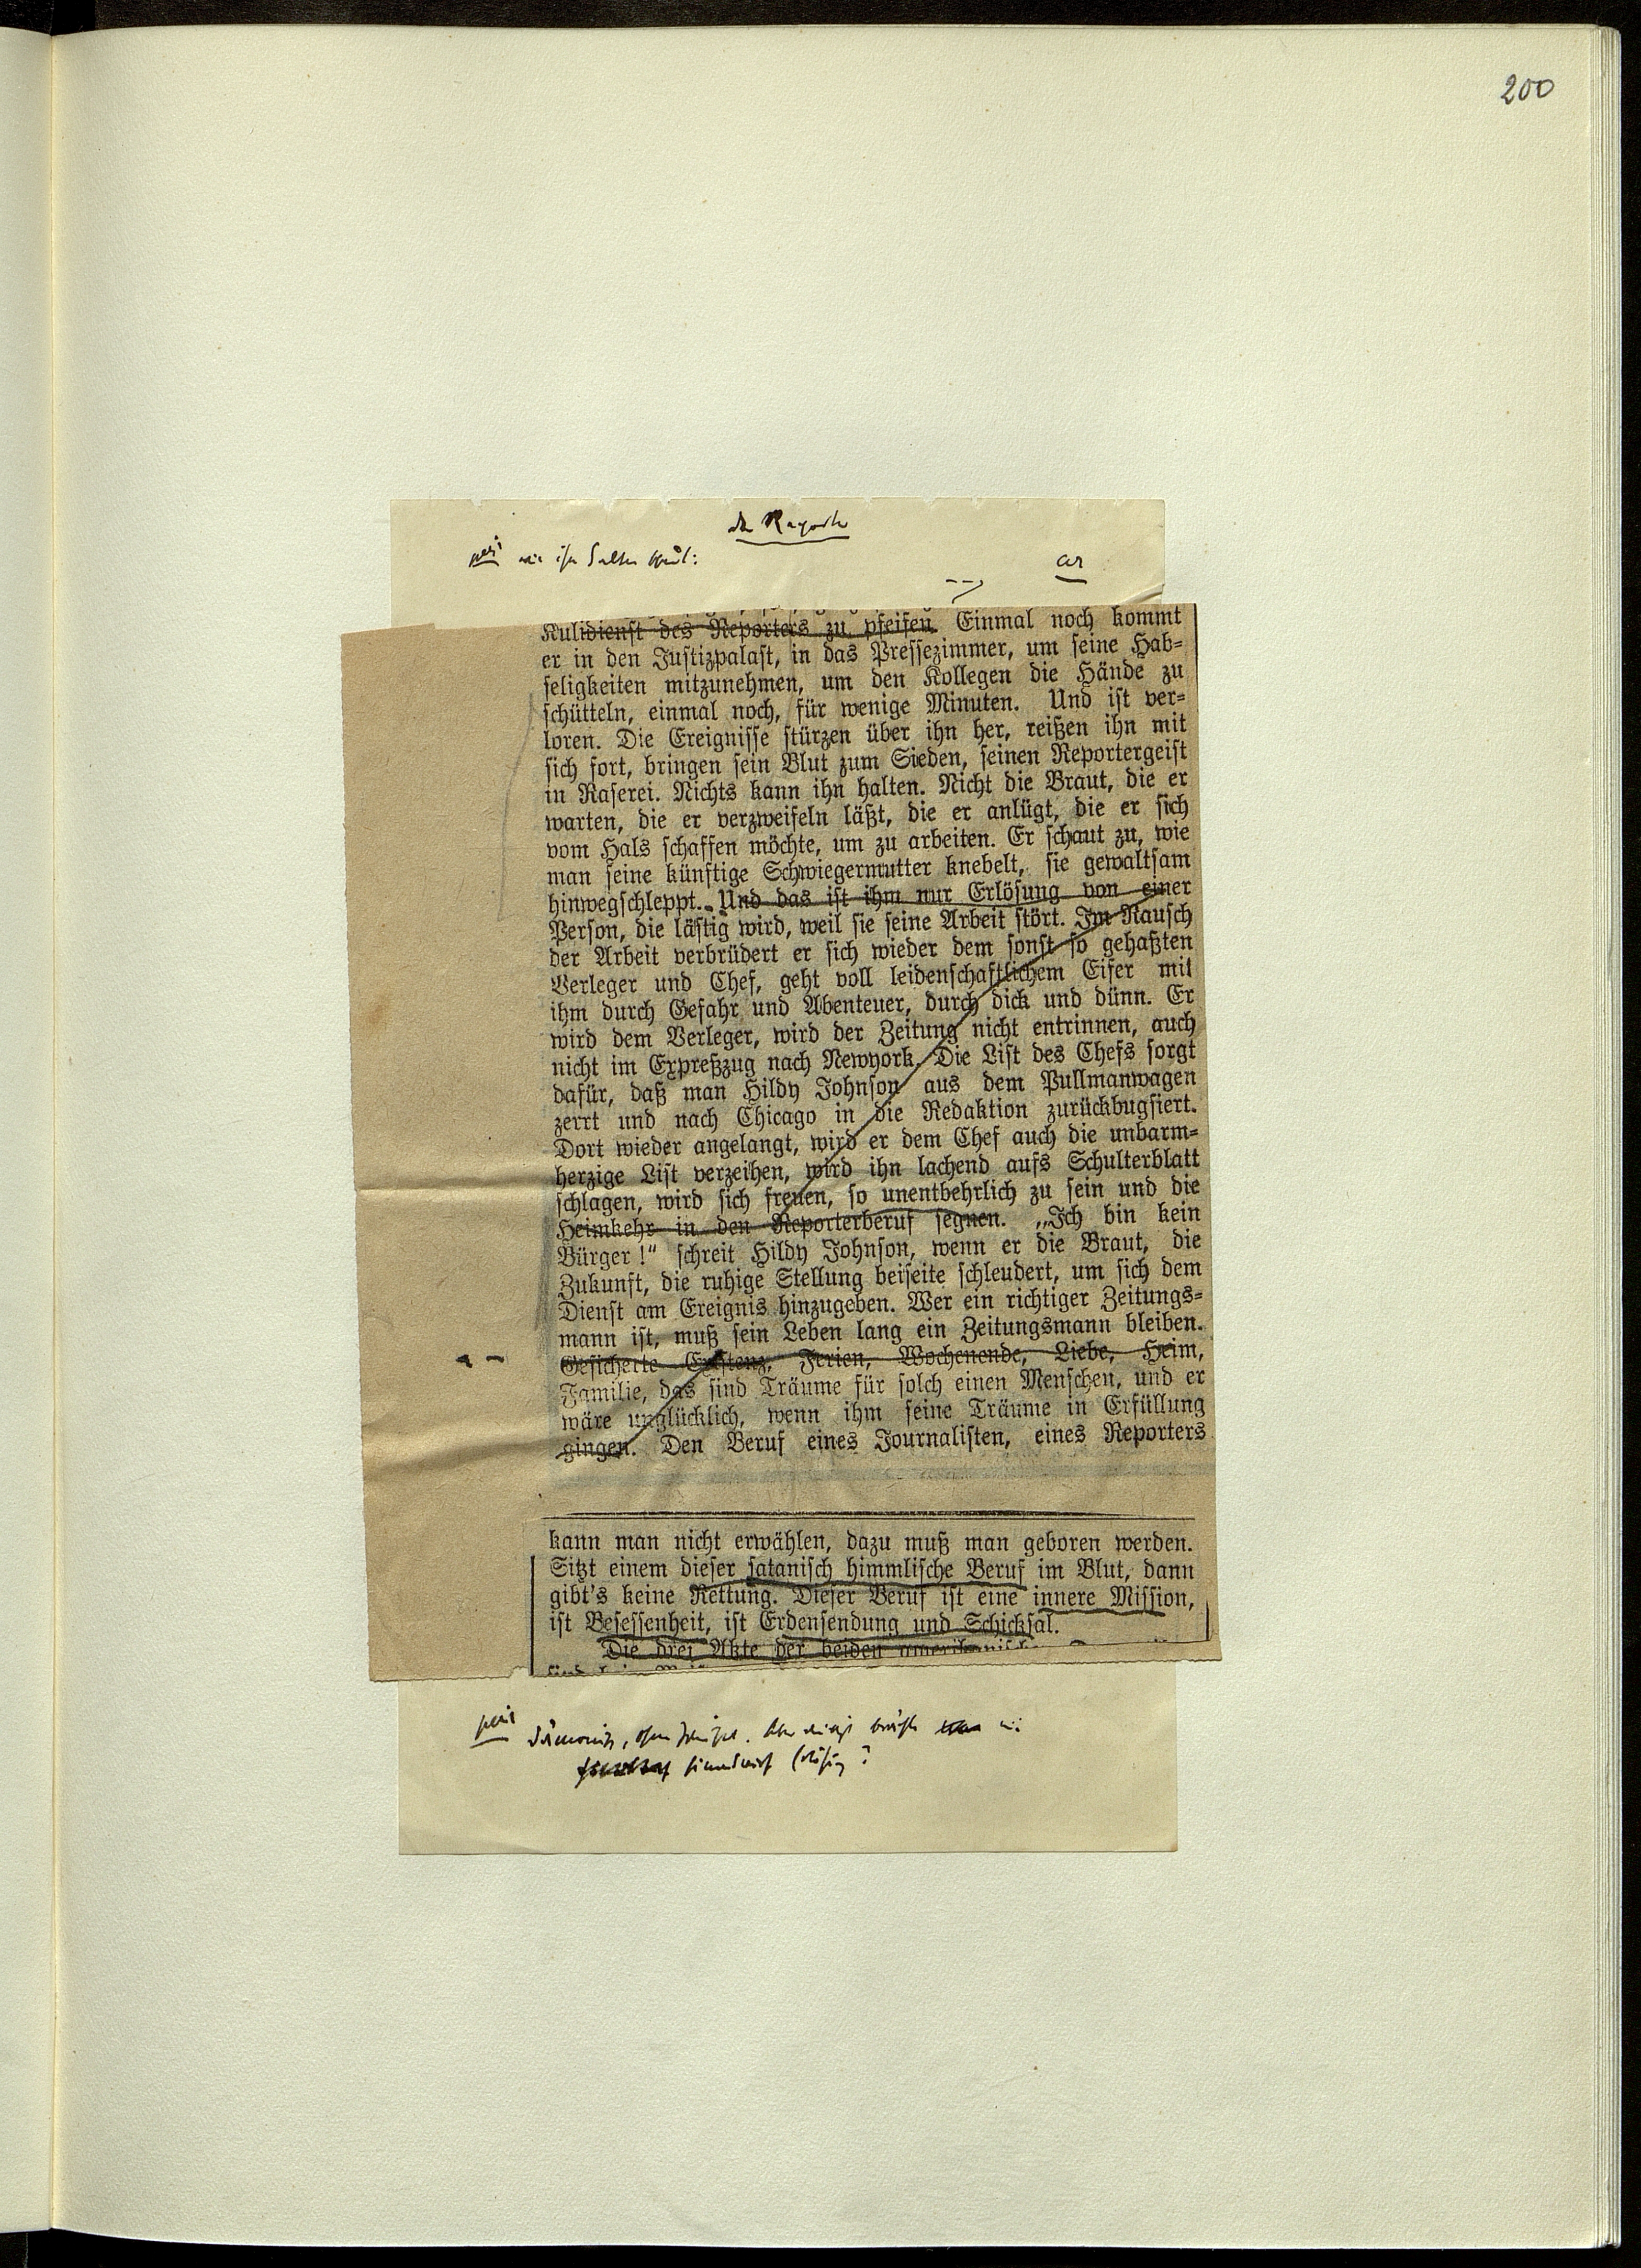 200
Kulidienst des Reporters zu pfeifen. Einmal noch kommt
er in den Justizpalast, in das Pressezimmer, um seine Hab-
seligkeiten mitzunehmen, um den Kollegen die Hände zu
schütteln, einmal noch, für wenige Minuten. Und ist ver-
loren. Die Ereignisse stürzen über ihn her, reißen ihn mit
sich fort, bringen sein Blut zum Sieden, seinen Reportergeist
in Raserei. Nichts kann ihn halten. Nicht die Braut, die er
warten, die er verzweifeln läßt, die er anlügt, die er sich
vom Hals schaffen möchte, um zu arbeiten. Er schaut zu, wie
man seine künftige Schwiegermutter knebelt, sie gewaltsam
hinwegschleppt. Und das ist ihm nur Erlösung von einer
Person, die lästig wird, weil sie seine Arbeit stört. Im Rausch
der Arbeit verbrüdert er sich wieder dem sonst so gehaßten
Verleger und Chef, geht voll leidenschaftlichem Eifer mit
ihm durch Gefahr und Abenteuer, durch dick und dünn. Er
wird dem Verleger, wird der Zeitung nicht entrinnen, auch
nicht im Expreßzug nach Newyork. Die List des Chefs sorgt
dafür, daß man Hildy Johnson aus dem Pullmanwagen
zerrt und nach Chicago in die Redaktion zurückbugsiert.
Dort wieder angelangt, wird er dem Chef auch die unbarm-
herzige List verzeihen, wird ihn lachend aufs Schulterblatt
schlagen, wird sich freuen, so unentbehrlich zu sein und die
Heimkehr in den Reporterberuf segnen. „Ich bin kein
Bürger!“ schreit Hildy Johnson, wenn er die Braut, die
Zukunft, die ruhige Stellung beiseite schleudert, um sich dem
Dienst am Ereignis hinzugeben. Wer ein richtiger Zeitungs-
mann ist, muß sein Leben lang ein Zeitungsmann bleiben.
Gesicherte Existenz, Ferien, Wochenende, Liebe, Heim,
Familie, das sind Träume für solch einen Menschen, und er
wäre unglücklich, wenn ihm seine Träume in Erfüllung
gingen. Den Beruf eines Journalisten, eines Reporters
kann man nicht erwählen, dazu muß man geboren werden.
Sitzt einem dieser satanisch himmlische Beruf im Blut, dann
gibt's keine Rettung. Dieser Beruf ist eine innere Mission,
ist Besessenheit, ist Erdensendung und Schicksal.
Die drei Akte der beiden